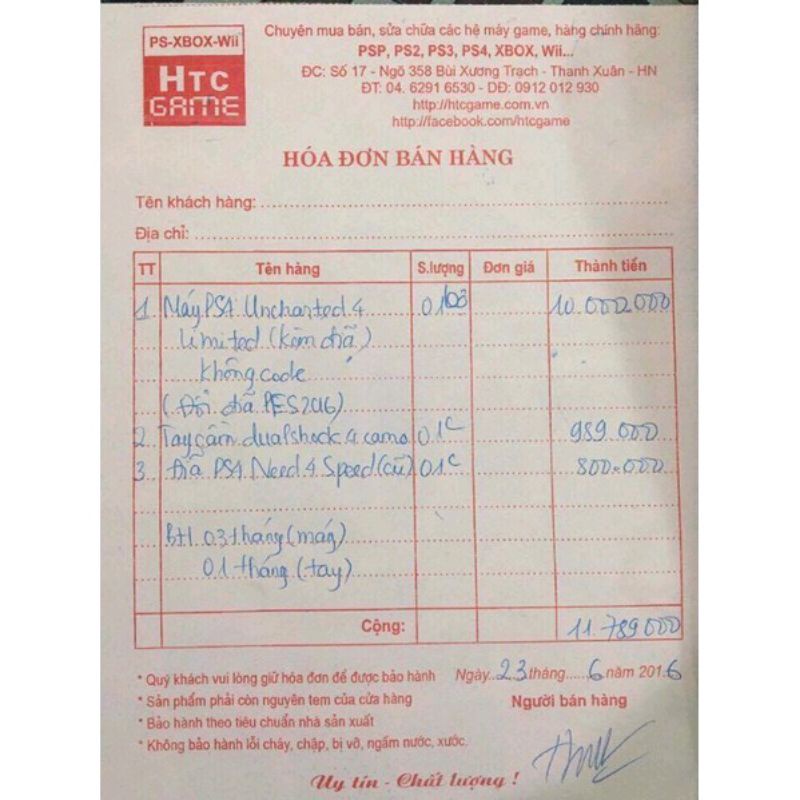 PS-XBOX-Wii
HTC
GAME
Chuyên mua bán, sửa chữa các hệ máy game, hàng chính hãng:
PSP, PS2, PS3, PS4, XBOX, Wii...
ĐC: Số 17 - Ngõ 358 Bùi Xương Trạch - Thanh Xuân - HN
ĐT: 04. 6291 6530 - DĐ: 0912 012 930
http://htcgame.com.vn
http://facebook.com/htcgame
HÓA ĐƠN BÁN HÀNG
Tên khách hàng:
Địa chỉ:
TT Tên hàng S.lượng Đơn giá Thành tiền
1. Máy PS4 Uncharted 4 01 10.000.000
Limited (kèm đĩa)
không code
(Đổi đĩa PES 2016)
2. Tay cầm dualshock 4 camo 01c 989.000
3. Đĩa PS4 Need 4 Speed (cũ) 01c 800.000
BH 03 tháng (máy)
01 tháng (tay)
Cộng: 11.789.000
* Quý khách vui lòng giữ hóa đơn để được bảo hành
Ngày 23 tháng 6 năm 2016
* Sản phẩm phải còn nguyên tem của cửa hàng
Người bán hàng
* Bảo hành theo tiêu chuẩn nhà sản xuất
* Không bảo hành lỗi cháy, chập, bị vỡ, ngấm nước, xước.
Uy tín - Chất lượng !